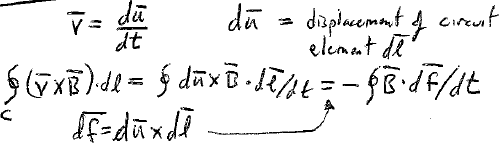 v̅ = du̅/dt    du̅ = displacement of circuit
element dl̅
∮_C (v̅×B̅)·dl = ∮ du̅×B̅·dl̅/dt = -∮B̅·df̅/dt
df̅=du̅×dl̅